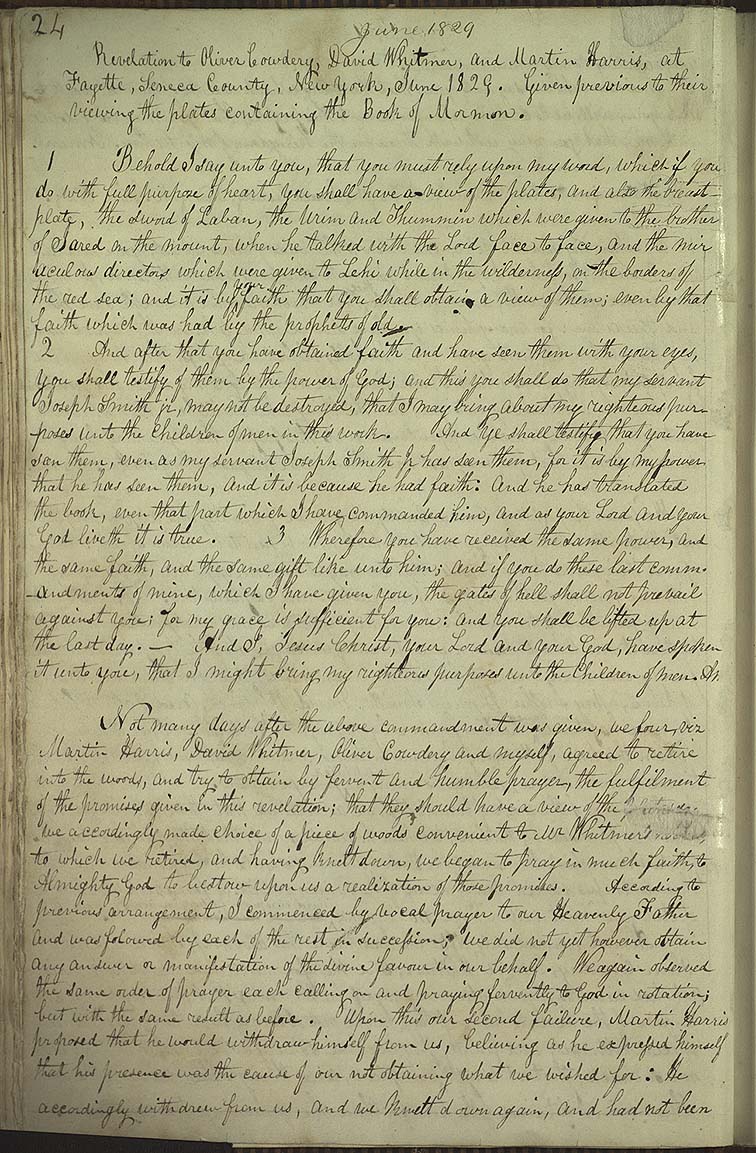 24
June 1829
Revelation to Oliver Cowdery, David Whitmer, and Martin Harris, at
Fayette, Seneca County, New York, June 1829. Given previous to their
viewing the plates containing the Book of Mormon.
1 Behold I say unto you, that you must rely upon my word, which if you
do with full purpose of heart, you shall have a view of the plates, and also the breast
plate, the sword of Laban, the Urim and Thummin which were given to the brother
of Jared on the mount, when he talked with the Lord face to face, and the mir
uculous directors which were given to Lehi while in the wilderness, on the borders of
the red sea; and it is by your faith that you shall obtain a view of them; even by that
faith which was had by the prophets of old.
2 And after that you have obtained faith and have seen them with your eyes,
you shall testify of them by the power of God; and this you shall do that my servant
Joseph Smith jr, may not be destroyed, that I may bring about my righteous pur-
poses unto the children of men in this work. And ye shall testify that you have
seen them, even as my servant Joseph Smith Jr has seen them, for it is by my power
that he has seen them, and it is because he had faith: And he has translated
the book, even that part which I have commanded him, and as your Lord and your
God liveth it is true. 3 Wherefore you have received the same power, and
the same faith, and the same gift like unto him; and if you do these last comm-
-andments of mine, which I have given you, the gates of hell shall not prevail
against you; for my grace is sufficient for you: and you shall be lifted up at
the last day. — And I, Jesus Christ, your Lord and your God, have spoken
it unto you, that I might bring my righteous purposes unto the children of men. An
Not many days after the above commandment was given, we four, viz
Martin Harris, David Whitmer, Oliver Cowdery and myself, agreed to retire
into the woods, and try to obtain by fervent and humble prayer, the fulfilment
of the promises given in this revelation; that they should have a view of the
we accordingly made choice of a piece of woods convenient to Mr Whitmer's
to which we retired, and having knelt down, we began to pray in much faith, to
Almighty God to bestow upon us a realization of those promises. According to
previous arrangement, I commenced by vocal prayer to our Heavenly Father
and was folowed by each of the rest in succession; we did not yet however obtain
any answer or manifestation of the divine favour in our behalf. We again observed
the same order of prayer each calling on and praying fervently to God in rotation;
but with the same result as before. Upon this our second failure, Martin Harris
proposed that he would withdraw himself from us, believing as he expressed himself
that his presence was the cause of our not obtaining what we wished for: He
accordingly withdrew from us, and we knelt down again, and had not been